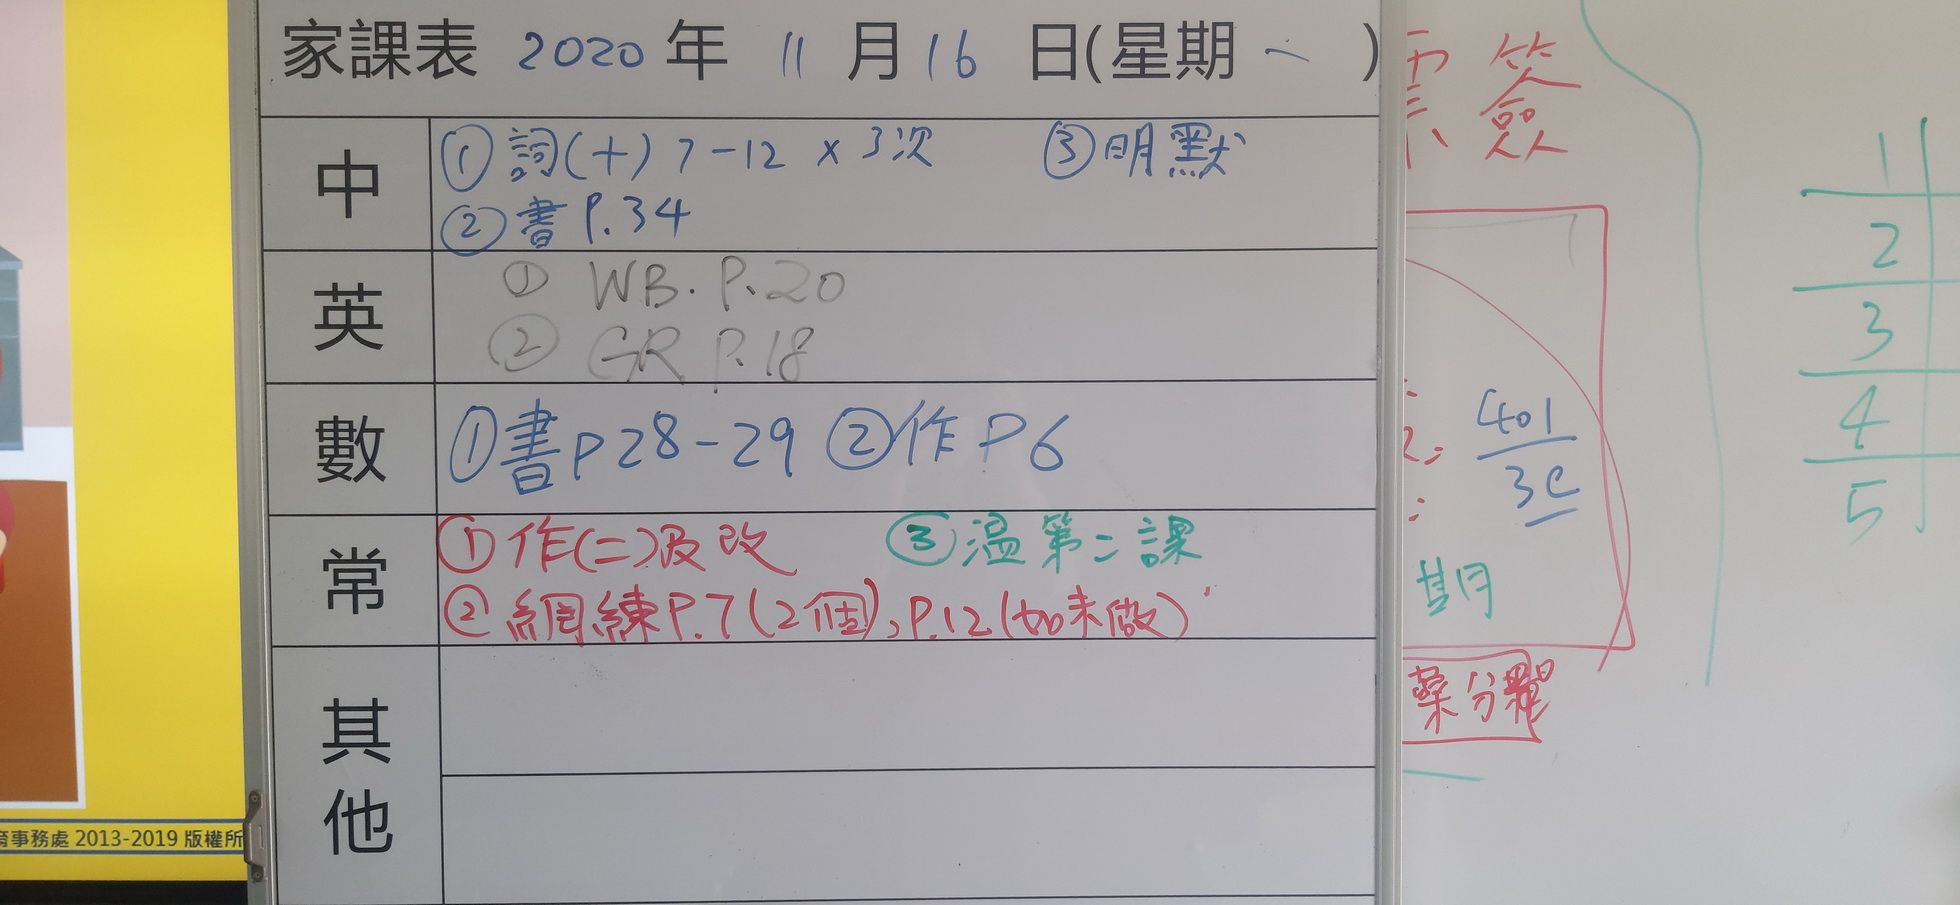 家課表 2020 年 11 月 16 日(星期 一 )
中
① 詞(十) 7-12 × 3次 ③ 明默
② 書 P.34
英
① WB. P.20
② GR P.18
數
① 書 P 28-29 ② 作 P 6
常
① 作(二)及改 ③ 溫第二課
② 網練 P.7 (2個), P.12 (如未做)
其他
簽
401
3C
期
1
2
3
4
5
事務處 2013-2019 版權所